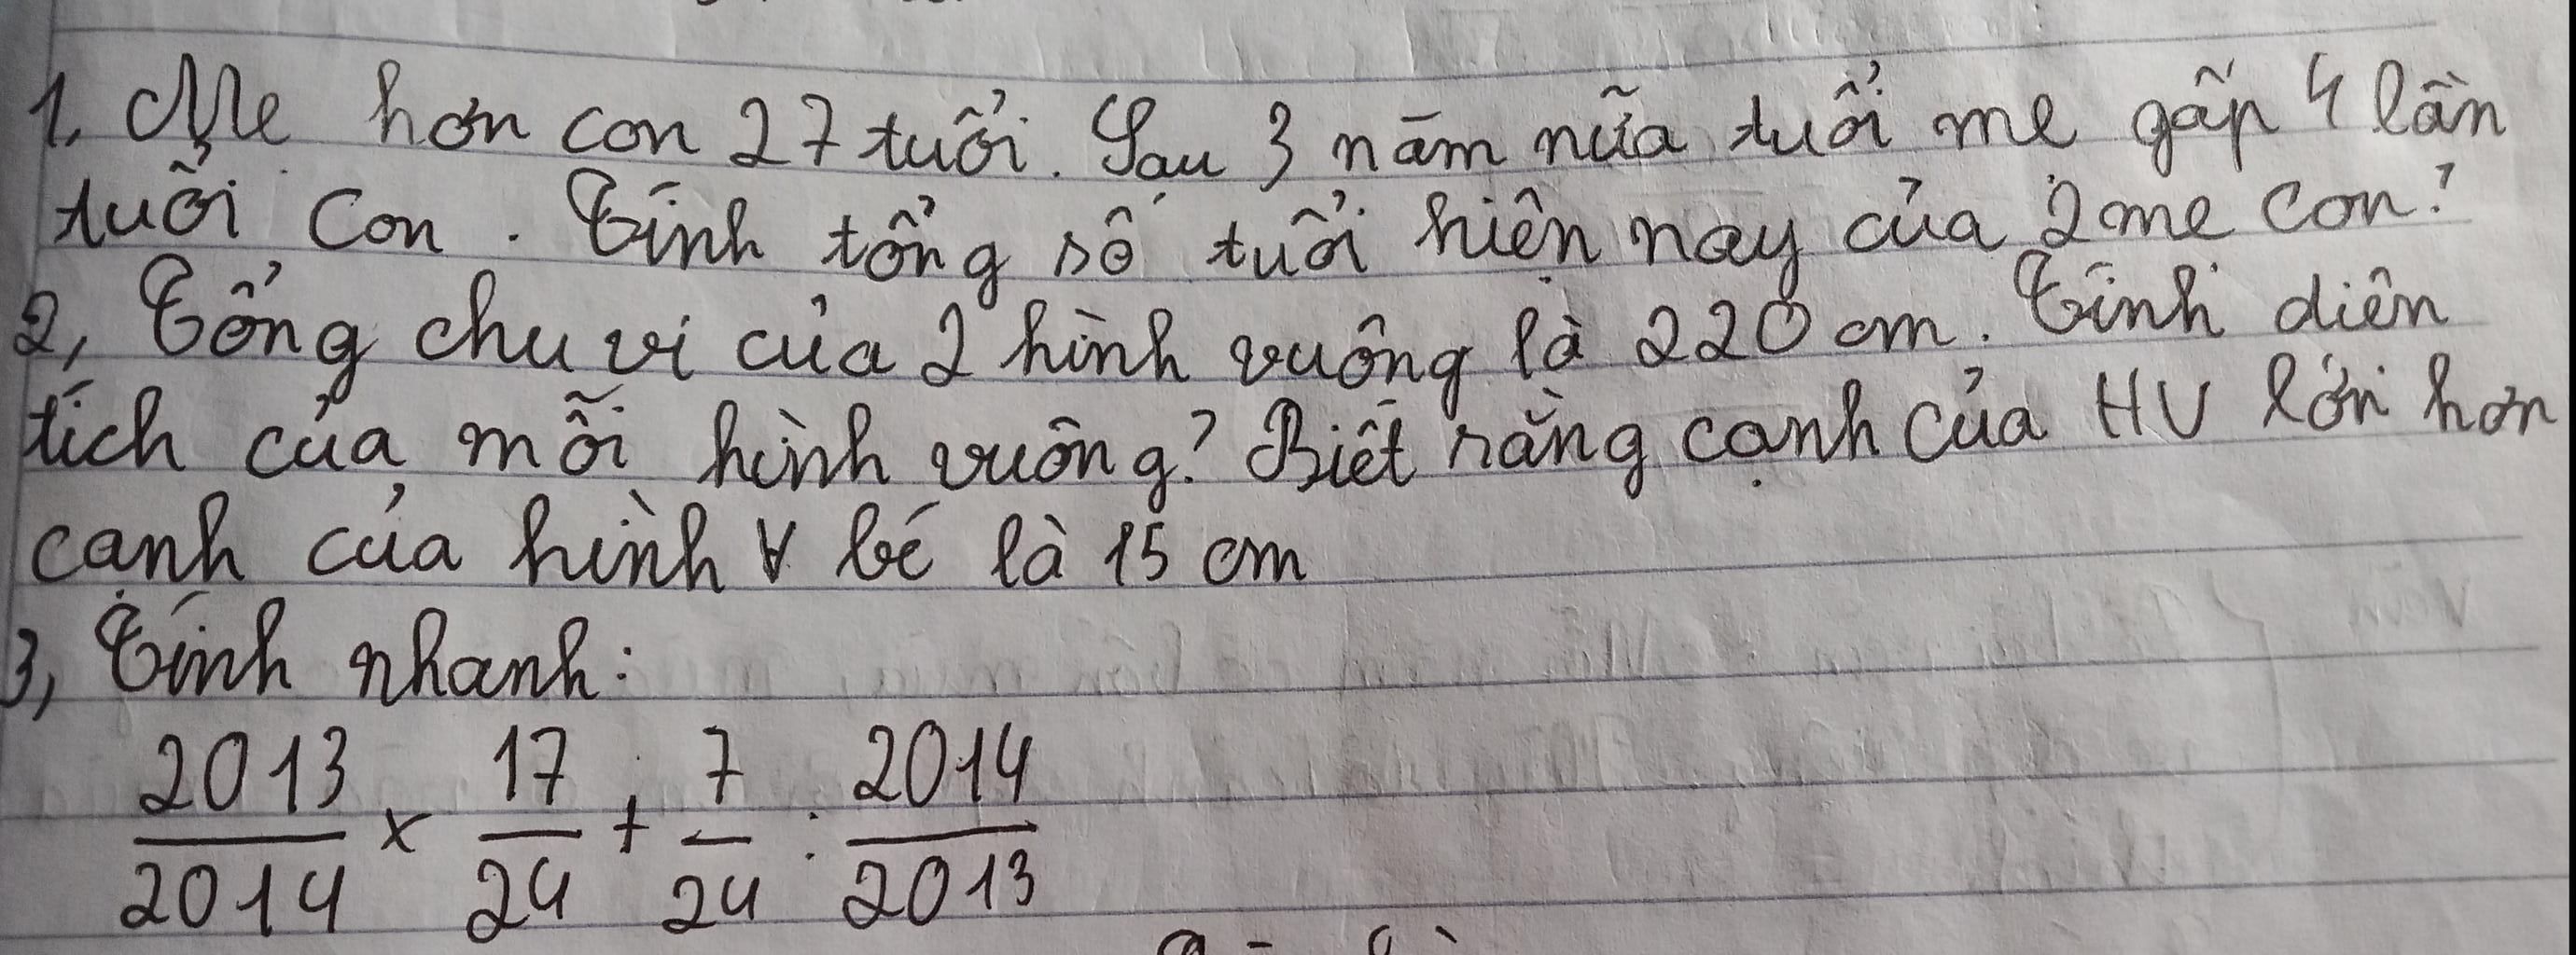 1, Mẹ hơn con 27 tuổi. Sau 3 năm nữa tuổi mẹ gấp 4 lần
tuổi con. Tính tổng số tuổi hiện nay của 2 mẹ con?
2, Tổng chu vi của 2 hình vuông là 220 cm. Tính diện
tích của mỗi hình vuông? Biết rằng cạnh của HV lớn hơn
cạnh của hình V bé là 15 cm
3, Tính nhanh:
2013/2014 x 17/24 + 7/24 : 2014/2013